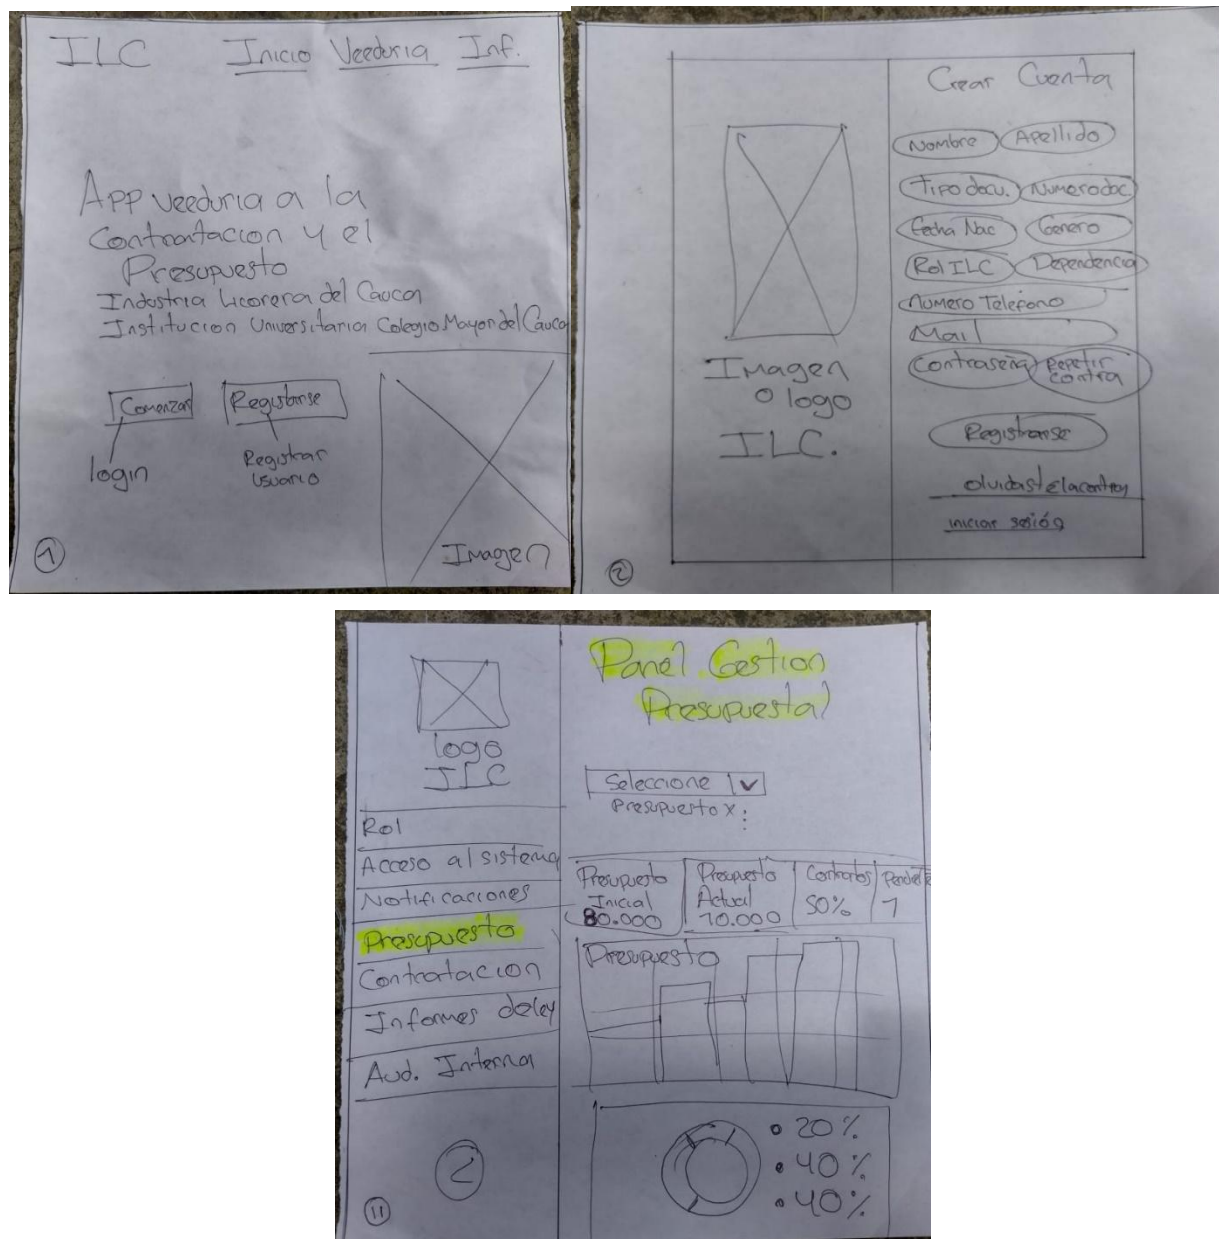 ILC Inicio Veeduria Inf.
App veeduria a la
Contratacion y el
Presupuesto
Industria Licorera del Cauca
Institucion Universitaria Colegio Mayor del Cauca
Comenzar Registrarse
login Registrar
usuario
Imagen
1
Crear Cuenta
Nombre Apellido
Tipo docu. Numero doc.
Fecha Nac Genero
Rol ILC Dependencia
Numero Telefono
Mail
Contraseña Repetir
contra
Registrarse
olvidaste la contra
iniciar sesión
Imagen
o logo
ILC.
2
logo
ILC
Rol
Acceso al sistema
Notificaciones
Presupuesto
Contratacion
Informes de ley
Aud. Interna
2
11
Panel Gestion
Presupuestal
Seleccione
Presupuesto x
Presupuesto
Inicial
80.000
Presupuesto
Actual
10.000
Contratos
50%
Presupuesto
20%
40%
40%